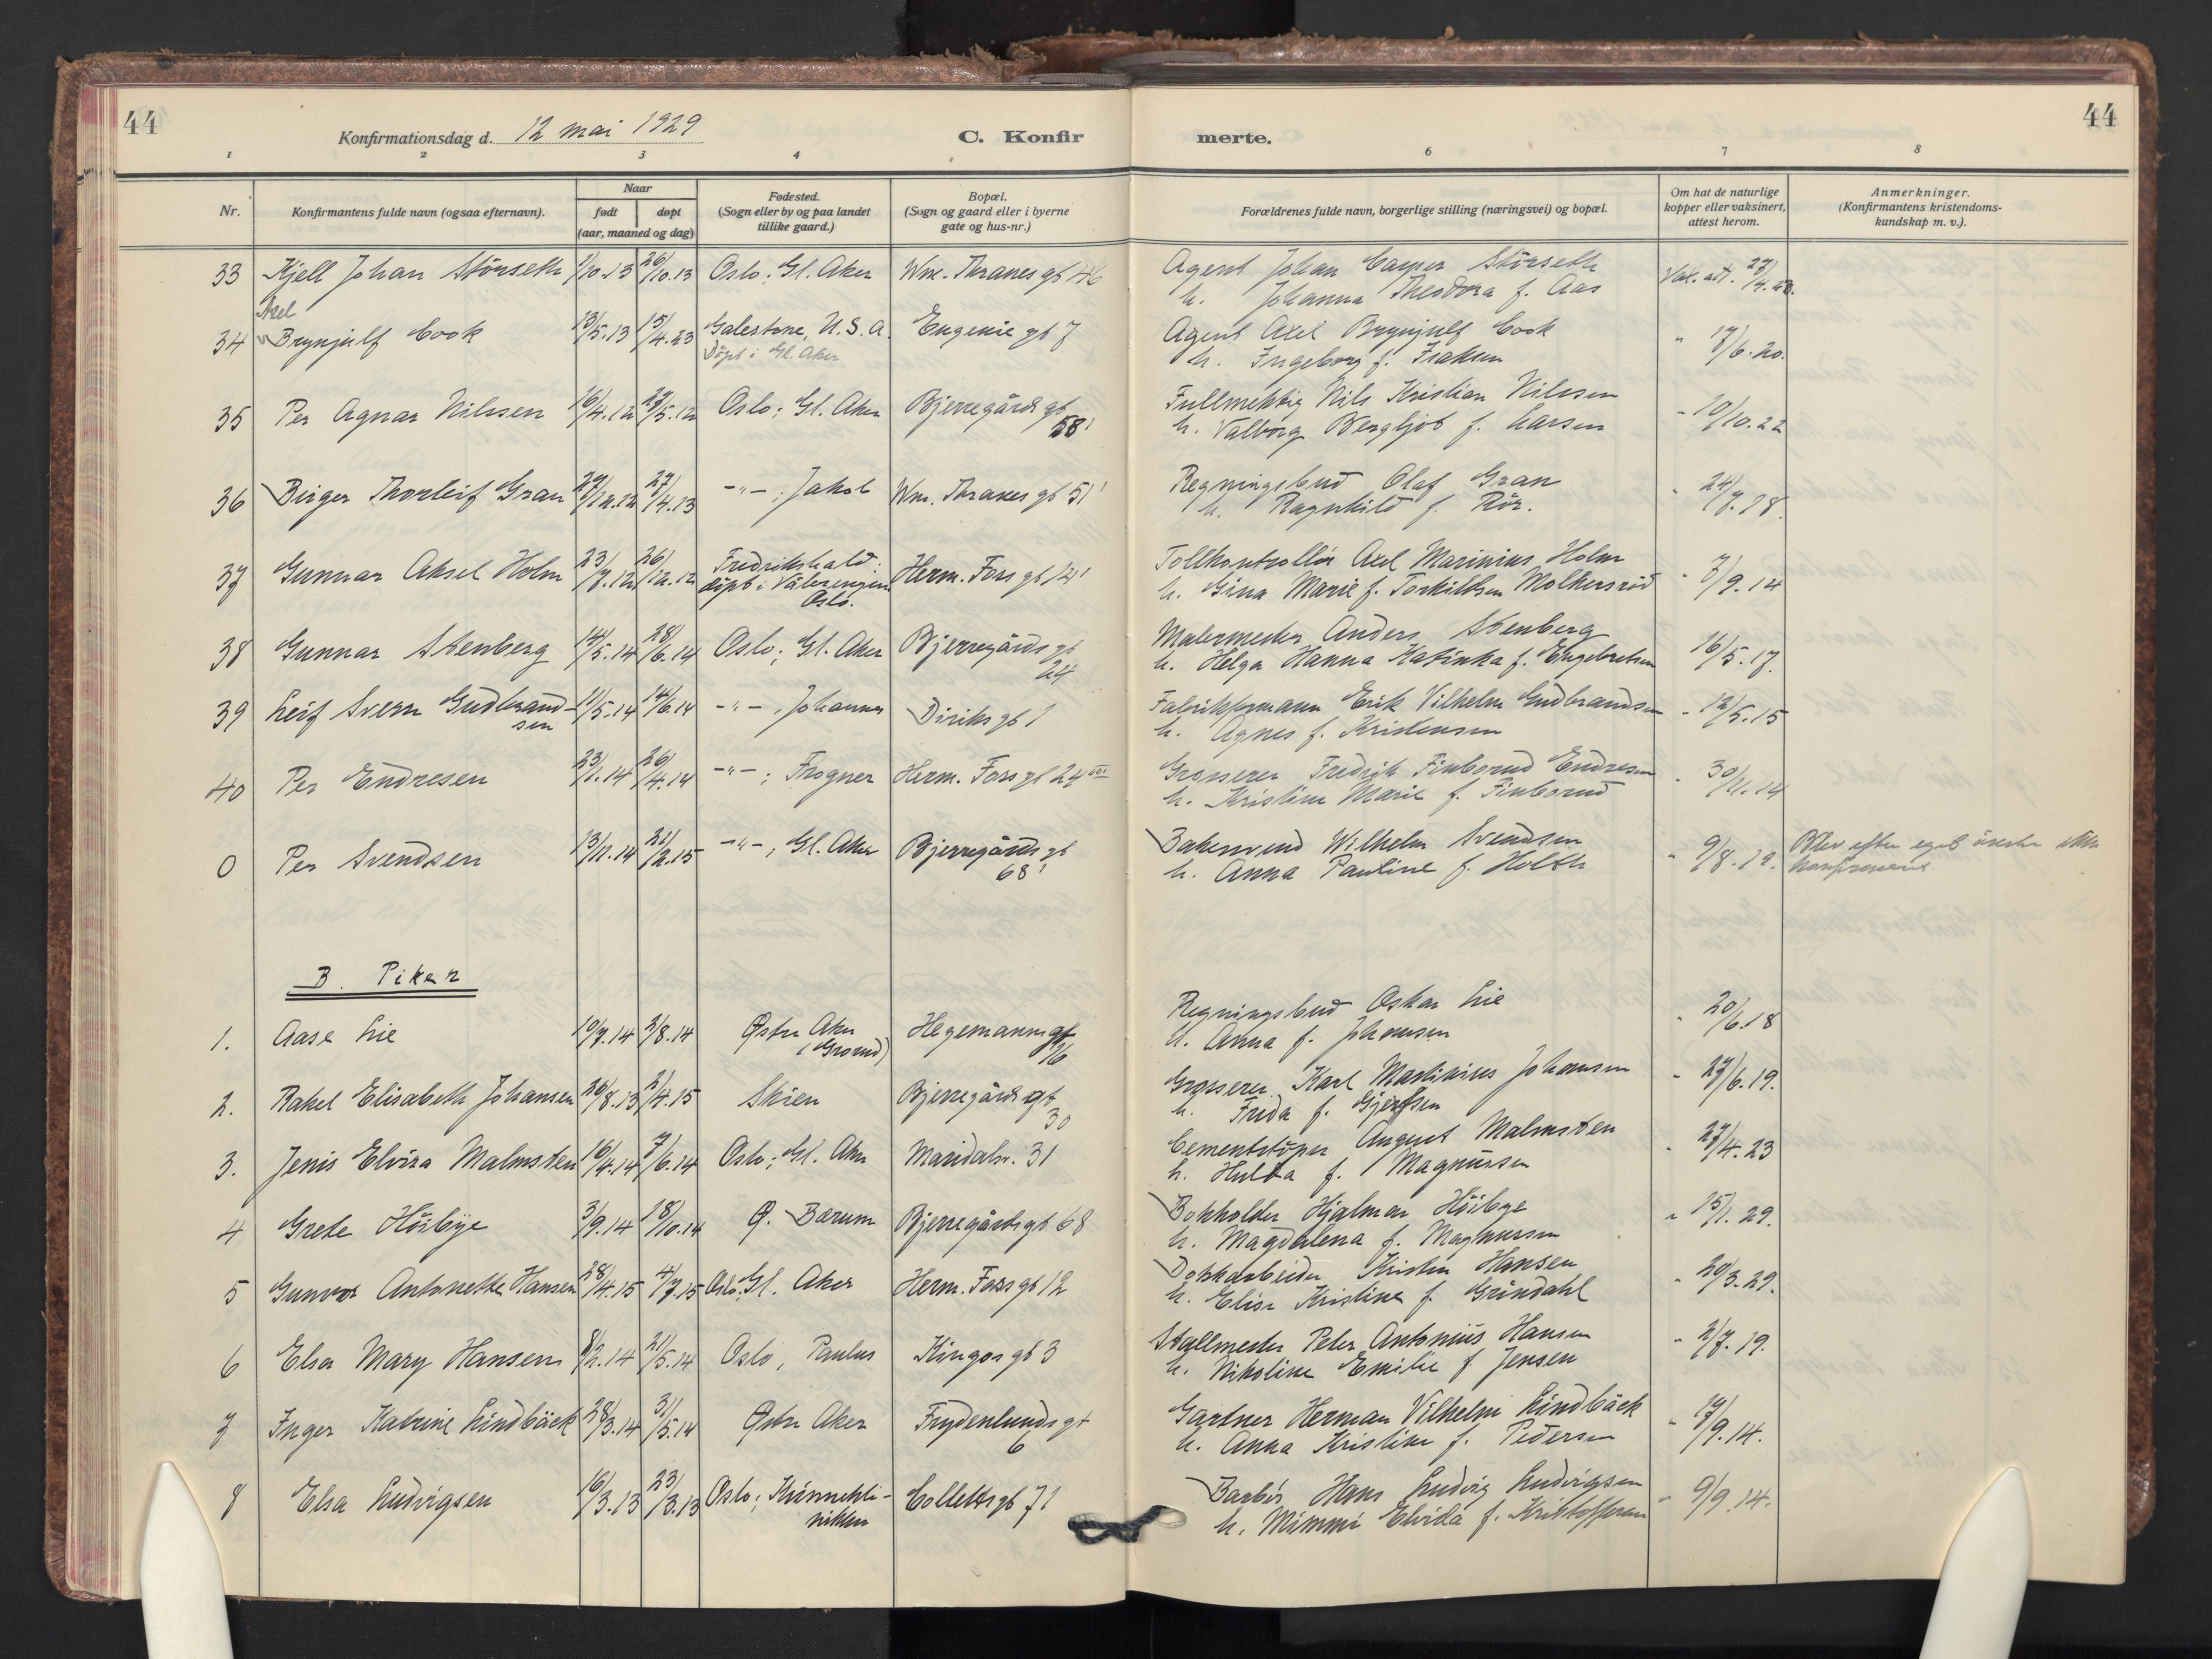 44
Konfirmationsdag d. 12 mai 1929
C. Konfir
merte.
44
1 2 3 4 6 7 8
Nr.
Konfirmantens fulde navn (ogsaa efternavn).
Naar
født døpt
(aar, maaned og dag)
Fødested.
(Sogn eller by og paa landet
tillike gaard.)
Bopæl.
(Sogn og gaard eller i byerne
gate og hus-nr.)
Forældrenes fulde navn, borgerlige stilling (næringsvei) og bopæl.
Om hat de naturlige
kopper eller vaksinert,
attest herom.
Anmerkninger.
(Konfirmantens kristendoms-
kundskap m. v.).
33 Kjell Johan Störseth 1/10.13 26/10.13 Oslo; Gl. Aker Wm. Thranes gt 46
Agent Johan Casper Störseth
h. Johanna Theodora f. Aas
Vak. att.
34 Axel
Brynjulf Cook 13/5.13 15/4.23 Galestone, U.S.A. Eugenie gt 7
Döpt i Gl. Aker
Agent Axel Brynjulf Cook
h. Ingeborg f. Isaksen
" 17/6.20.
35 Per Agnar Nilssen 16/4.12 27/5.12 Oslo; Gl. Aker Bjerregårds gt
58'
Fullmektig Nils Kristian Nilssen
h. Valborg Bergljot f. Larsen
" 10/10.22
36 Birger Thorleif Gran 29/12.12 27/4.13 -"-; Jakob Wm. Thranes gt 51'
Regningsbud Olaf Gran
h. Ragnhild f. Rör.
" 24/7.18.
37 Gunnar Aksel Holm 23/7.12 26/12.12 Fredrikshald:
döpt i Vålerengen
Oslo.
Herm. Foss gt 14'
Tollkontrollör Axel Marinius Holm
h. Gina Marie f. Torkildsen Molkersröd
" 7/9.14
38 Gunnar Stenberg 14/5.14 28/6.14 Oslo; Gl. Aker Bjerregårds gt
24
Malermester Anders Stenberg
h. Helga Hanna Katinka f. Engebretsen
16/5.17.
39 Leif Svern Gudbrand-
sen 11/5.14 14/6.14 -"-, Johannes Diriks gt 1
Fabrikformann Erik Vilhelm Gudbrandsen
h. Agnes f. Kristensen
" 12/5.15
40 Per Endresen 23/1.14 26/4.14 -"-; Frogner Herm. Foss gt 24
Grosserer Fredrik Finborud Endresen
h. Kristine Marie f. Finborud
" 30/11.14
0 Per Svendsen 13/11.14 21/2.15 -"-; Gl. Aker Bjerregårds gt
68'
Bakersvend Wilhelm Svendsen
h. Anna Pauline f. Holth
" 9/8.19.
Blev efter eget önske ikke
konfirmert
B. Piker
1. Aase Lie 10/7.14 2/8.14 Østre Aker
(Grorud) Hegemanns gt
26
Regningsbud Oskar Lie
h. Anna f. Johansen
" 20/6.18
2. Rakel Elisabeth Johansen 26/8.13 2/4.15 Skien Bjerregårds gt
30
Grosserer Karl Martinius Johansen
h. Frida f. Gjertsen
" 27/6.19.
3. Jenis Elvira Malmsten 16/4.14 7/6.14 Oslo; Gl. Aker Maridalsv. 31
Cementstöper August Malmsten
h. Hulda f. Magnussen
" 27/4.23
4 Grete Höibye 3/9.14 18/10.14 Ø. Bærum Bjerregårds gt 68
Bokholder Hjalmar Höibye
h. Magdalena f. Magnussen
" 15/1.29.
5 Gunvor Antonette Hansen 28/4.15 4/7.15 Oslo; Gl. Aker Herm. Foss gt 12
Dokkarbeider Kristen Hansen
h. Elise Kristine f. Gründahl
" 20/3.29.
6 Elsa Mary Hansen 8/2.14 21/5.14 Oslo, Paulus Kingos gt 3
Stallmester Peter Antonius Hansen
h. Nikoline Emilie f. Jensen
" 2/7.19.
7 Inger Katrine Lindbäck 28/3.14 31/5.14 Østre Aker Frydenlunds gt
6
Gartner Herman Vilhelm Lindbäck
h. Anna Kristine f. Pedersen
" 19/9.14.
8 Elsa Ludvigsen 16/3.13 23/3.13 Oslo; Kvinnekli-
nikken Colletts gt 71
Barbér Hans Ludvig Ludvigsen
h. Mimmi Elvida f. Kristoffersen
" 9/9.14.